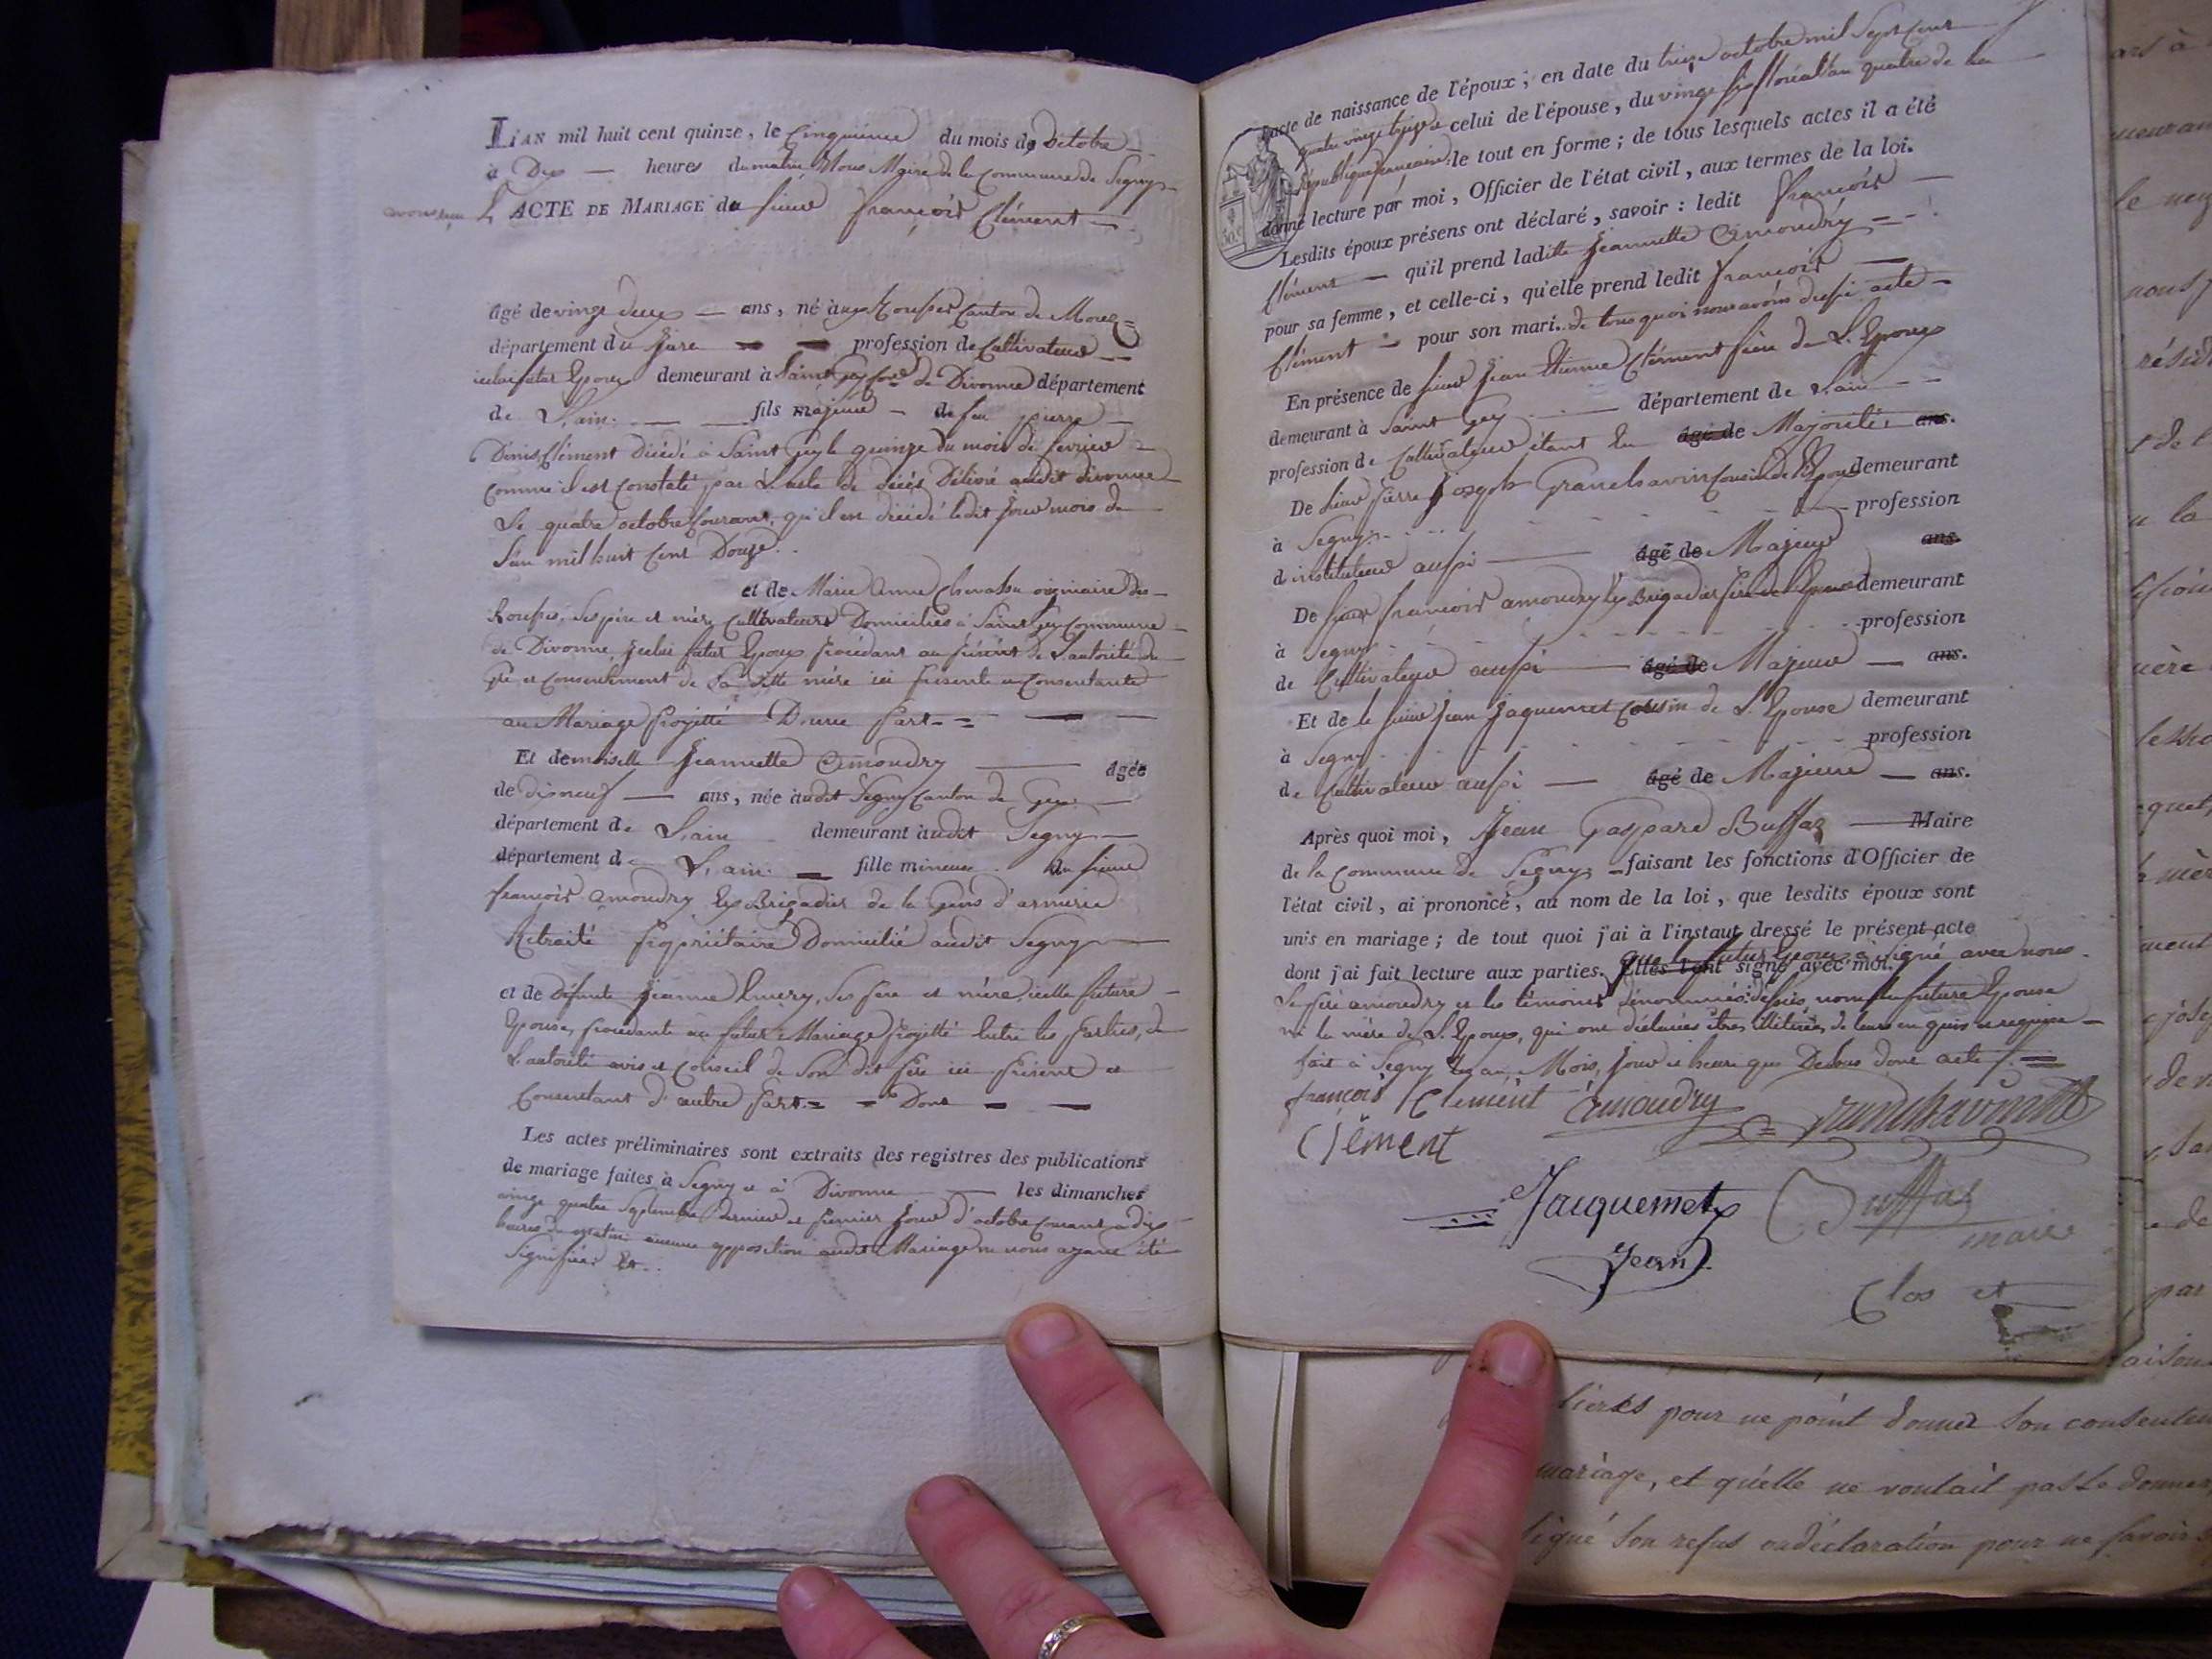 L'AN mil huit cent quinze, le Cinquième du mois de D'octobre
à Dix heures du matin Nous Maire de la Commune de Segny
avons reçu L'ACTE DE MARIAGE du sieur françois Clément
âgé de vingt deux ans, né aux Rousses Canton de Morez
département du Jura profession de Cultivateur
icelui futur Epoux demeurant à Saint Gey de Divonne département
de L'ain fils majeur de feu pierre
Denis Clément décédé à Saint Gey le quinze du mois de fevrier
comme il est Constaté par L'acte de décès Délivré audit divonne
Le quatre octobre Courant, qu'il est décédé ledit jour mois de
L'an mil huit Cent Douze.
et de Marie Anne Chevassu originaire des
Rousses, ses père et mère Cultivateurs Domiciliés à Saint Gey Commune
de Divonne, icelui futur Epoux procédant au présent de L'autorité du
gré et Consentement de Sa ditte mère ici presente et Consentante
au Mariage projetté D'une part
Et demoiselle Jeannette Amoudry agée
de dixneuf ans, née audit Segny Canton de Gex
département de L'ain demeurant audit Segny
département de L'ain fille mineure du sieur
françois Amoudry Ex Brigadier de la Gens d'armerie
Retraité propriétaire Domicilié audit Segny
et de défunte Jeanne Emery, ses père et mère, icelle future
Epouse, procédante au futur Mariage projetté Entre les parties, de
L'autorité avis et Conseil de Son dit père ici présent et
Consentant d'autre part. Dont
Les actes préliminaires sont extraits des registres des publications
de mariage faites à Segny et à Divonne les dimanches
vingt quatre Septembre dernier et premier jour d'octobre Courant à dix
heures du matin aucune opposition audit Mariage ne nous ayant été
Signifiée: Et.
l'acte de naissance de l'époux; en date du treize octobre mil Sept Cent
quatre vingt treize celui de l'épouse, du vingt six floréal an quatre de la
république française; le tout en forme; de tous lesquels actes il a été
donné lecture par moi, Officier de l'état civil, aux termes de la loi.
Lesdits époux présens ont déclaré, savoir: ledit François
Clément qu'il prend laditte Jeannette Amoudry
pour sa femme, et celle-ci, qu'elle prend ledit François
Clément pour son mari. de tous quoi nous avons dressé acte
En présence de sieur Jean Etienne Clément frère de L'Epoux
demeurant à Saint Gey département de L'ain
profession de Cultivateur étant En âgé de Majorité ans.
De sieur Pierre Joseph Granchavin Cousin de L'Epoux demeurant
à Segny profession
d'instituteur aussi âgé de Majeur ans.
De sieur françois amoudry Ex Brigadier père de L'Epouse demeurant
à Segny profession
de Cultivateur aussi âgé de Majeur ans.
Et de le sieur Jean Jaquemet Cousin de L'Epouse demeurant
à Segny profession
de Cultivateur aussi âgé de Majeur ans.
Après quoi moi, Jean Gaspard Buffaz Maire
de la Commune de Segny faisant les fonctions d'Officier de
l'état civil, ai prononcé, au nom de la loi, que lesdits époux sont
unis en mariage; de tout quoi j'ai à l'instant dressé le présent acte
dont j'ai fait lecture aux parties. Elles l'ont signé avec moi. que le futur Epoux à Signé avec nous.
Le père amoudry et les témoins dénommés dessus, non la future Epouse
ni la mère de L'Epoux, qui ont déclarées êtres illitérées, de leurs en quis et requise
fait à Segny les an, Mois, jour et heure que Dessus dont acte
françois Clément amoudry Grandchavin
Clément
Jacquemet Buffaz
maire
Jean
Clos et
lières pour ne point donner son consentem
mariage, et qu'elle ne voulait pas le donner
signé son refus ou déclaration pour ne savoir